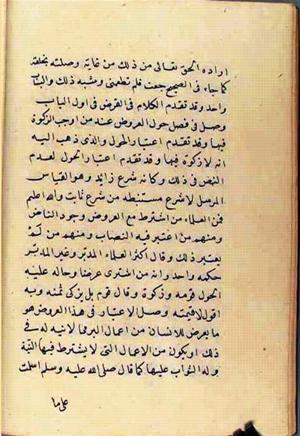 اراده الحق تعالى من ذلك من غاية وصلته بخلقه
كما جاء فى الصحيح جعت فلم تطعمنى وشبه ذلك والباب
واحد وقد تقدم الكلام فى القرض فى اول الباب
وصل فى فصل حول العروض عند من اوجب الزكوة
فيها وقد تقدم اعتبار الحول والذى ذهب اليه
انه لا زكوة فيها وقد تقدم اعتبار الحول لعدم
النص فى ذلك وكانه شرع زائد وهو القياس
المرسل لا شرع مستنبط من شرع ثابت والله اعلم
فمن العلماء من اشترط مع العروض وجود الناض
ومنهم من اعتبر فيه النصاب ومنهم من لم
يعتبر ذلك وقال اكثر العلماء المدير وغير المدير
حكمه واحد وانه من اشترى عرضا وحال عليه
الحول قومه وزكوة وقال قوم بل يزكى ثمنه وبه
اقول لا قيمته وصل الاعتبار فى هذا العروض هو
ما يعرض للانسان من اعمال البر مما لا نية له فى
ذلك او يكون من الاعمال التى لا يشترط فيها النية
وله الثواب عليها كما قال صلى الله عليه وسلم اسلمت
على ما